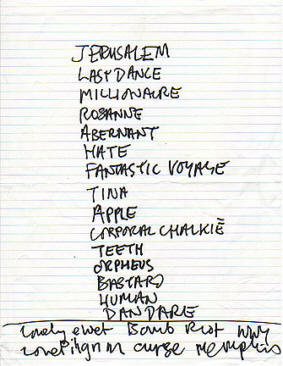 JERUSALEM
LAST DANCE
MILLIONAIRE
ROSANNE
ABERNANT
HATE
FANTASTIC VOYAGE
TINA
APPLE
CORPORAL CHALKIE
TEETH
ORPHEUS
BASTARD
HUMAN
DAN DARE
Lonely Wet Bomb Riot Why
Love Pilgrim curse Memphis